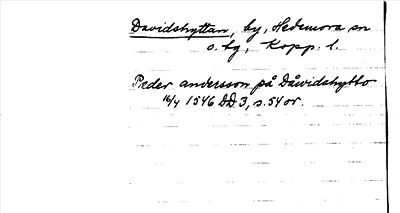 Davidshyttan, by, Hedemora sn
o. bg, Kopp. l.
Peder andersson på Dåwidshytto
16/4 1546 DD 3, s. 54 or.